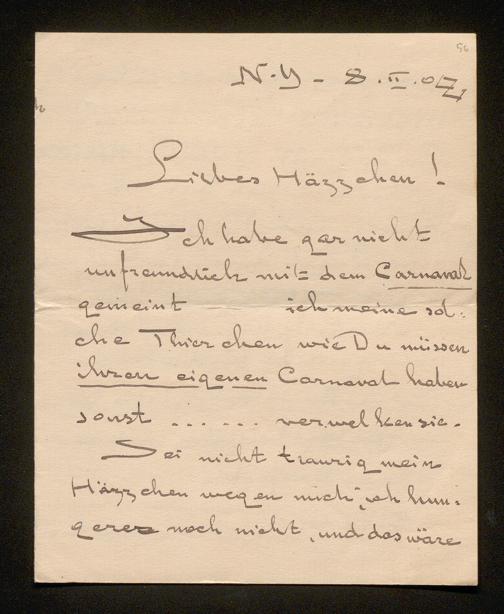 56
N.Y - 8.II.07
Liebes Häzzchen!
Ich habe gar nicht
unfreundlich mit dem Carnaval
gemeint ich meine sol-
che Thierchen wie Du müssen
ihren eigenen Carnaval haben
sonst ...... verwelken sie.
Sei nicht traurig mein
Häzzchen wegen mich, ich hun-
gere noch nicht, und das wäre